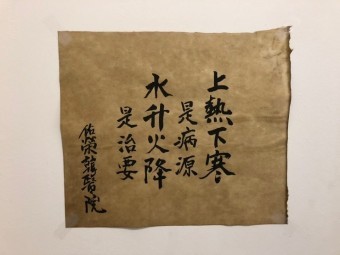 上熱下寒
是病源
水升火降
是治要
佑榮韓醫院